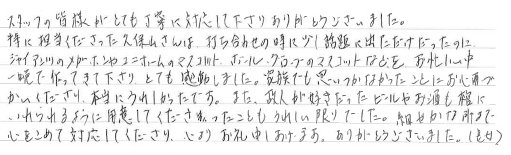 スタッフの皆様がとても丁寧に対応して下さりありがとうございました。
特に担当くださった久保山さんは、打ち合わせの時に少し話題に出ただけだったのに
ジャイアンツのメガホンやユニホームのマスコット、ボール・グローブのマスコットなどを、お忙しい中
一晩で作ってきて下さり、とても感動しました。家族でも思いつかなかったことにお心遣い
かいくださり、本当にうれしかったです。また、故人が好きだったビールやお酒も棺に
いれられるように用意してくださったこともうれしい限りでした。細やかな所まで
心をこめて対応してくださり、心よりお礼申しあげます。ありがとうございました。